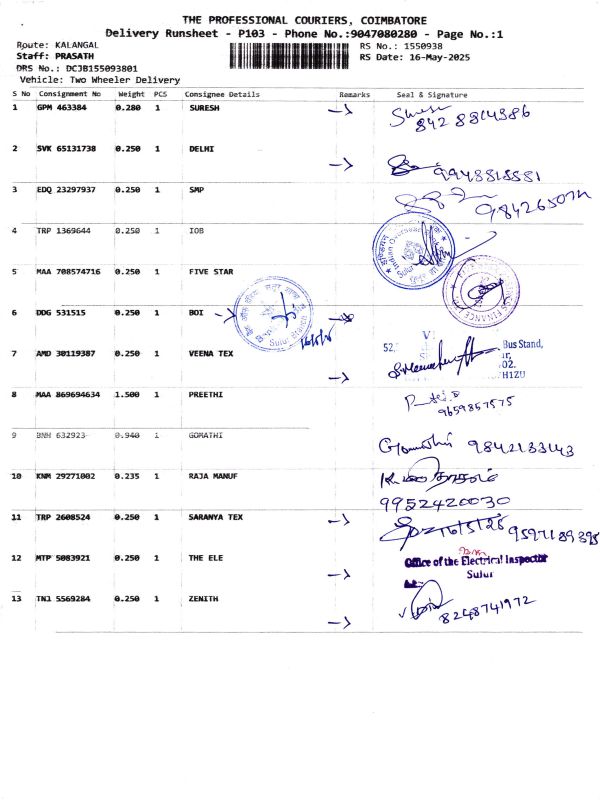 THE PROFESSIONAL COURIERS, COIMBATORE
Delivery Runsheet - P103 - Phone No.:9047080280 - Page No.:1
Route: KALANGAL RS No.: 1550938
Staff: PRASATH RS Date: 16-May-2025
DRS No.: DCJB155093801
Vehicle: Two Wheeler Delivery
S No Consignment No Weight PCS Consignee Details Remarks Seal & Signature
1 GPM 463384 0.280 1 SURESH
8428814386
2 SVK 65131738 0.250 1 DELHI
9948818881
3 EDQ 23297937 0.250 1 SMP
4 TRP 1369644 0.250 1 IOB
5 MAA 708574716 0.250 1 FIVE STAR
6 DDG 531515 0.250 1 BOI
Sulur Branch
16/5/25
Bus Stand,
52,
7 AMD 30119387 0.250 1 VEENA TEX
8 MAA 869694634 1.500 1 PREETHI
9659857575
9 BNH 632923 0.940 1 GOMATHI
Gomathi 9842133143
10 KNM 29271002 0.235 1 RAJA MANUF
9952420030
11 TRP 2608524 0.250 1 SARANYA TEX
16/5/25 9597189395
12 MTP 5083921 0.250 1 THE ELE
Office of the Electrical Inspector
Sulur
13 TNJ 5569284 0.250 1 ZENITH
8248741972